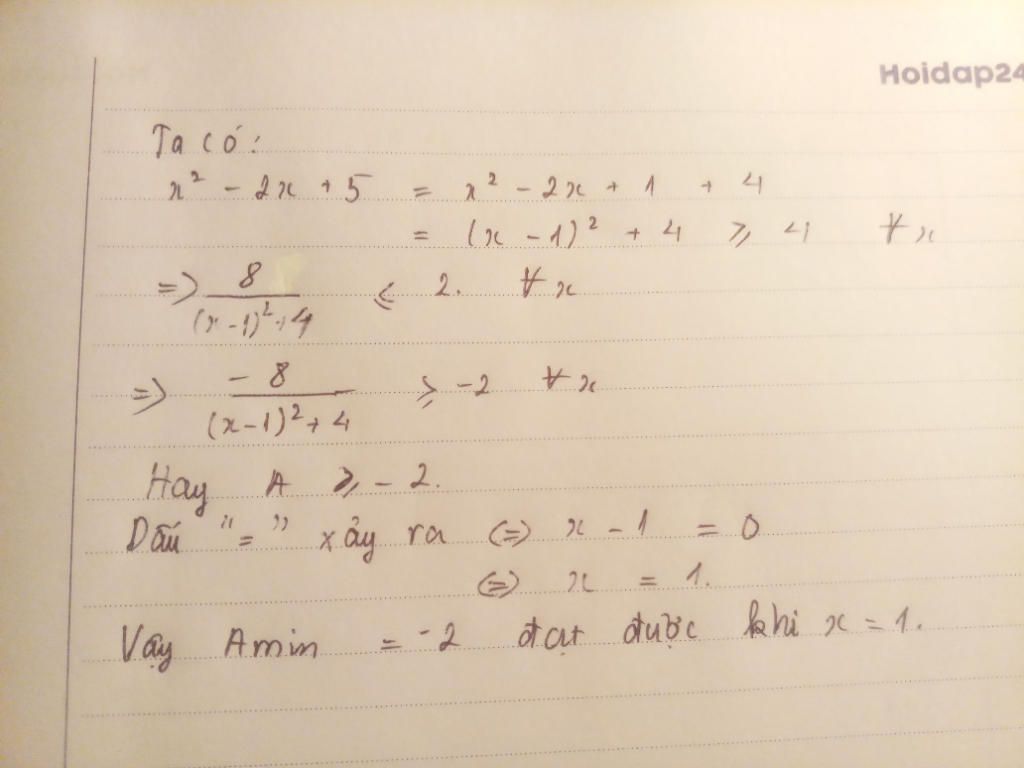 Hoidap24
Ta có:
x² - 2x + 5 = x² - 2x + 1 + 4
= (x - 1)² + 4 ⩾ 4 ∀x
=> 8/((x-1)²+4) ⩽ 2. ∀x
=> -8/((x-1)²+4) ⩾ -2 ∀x
Hay A ⩾ -2.
Dấu "=" xảy ra <=> x - 1 = 0
<=> x = 1.
Vậy Amin = -2 đạt được khi x = 1.